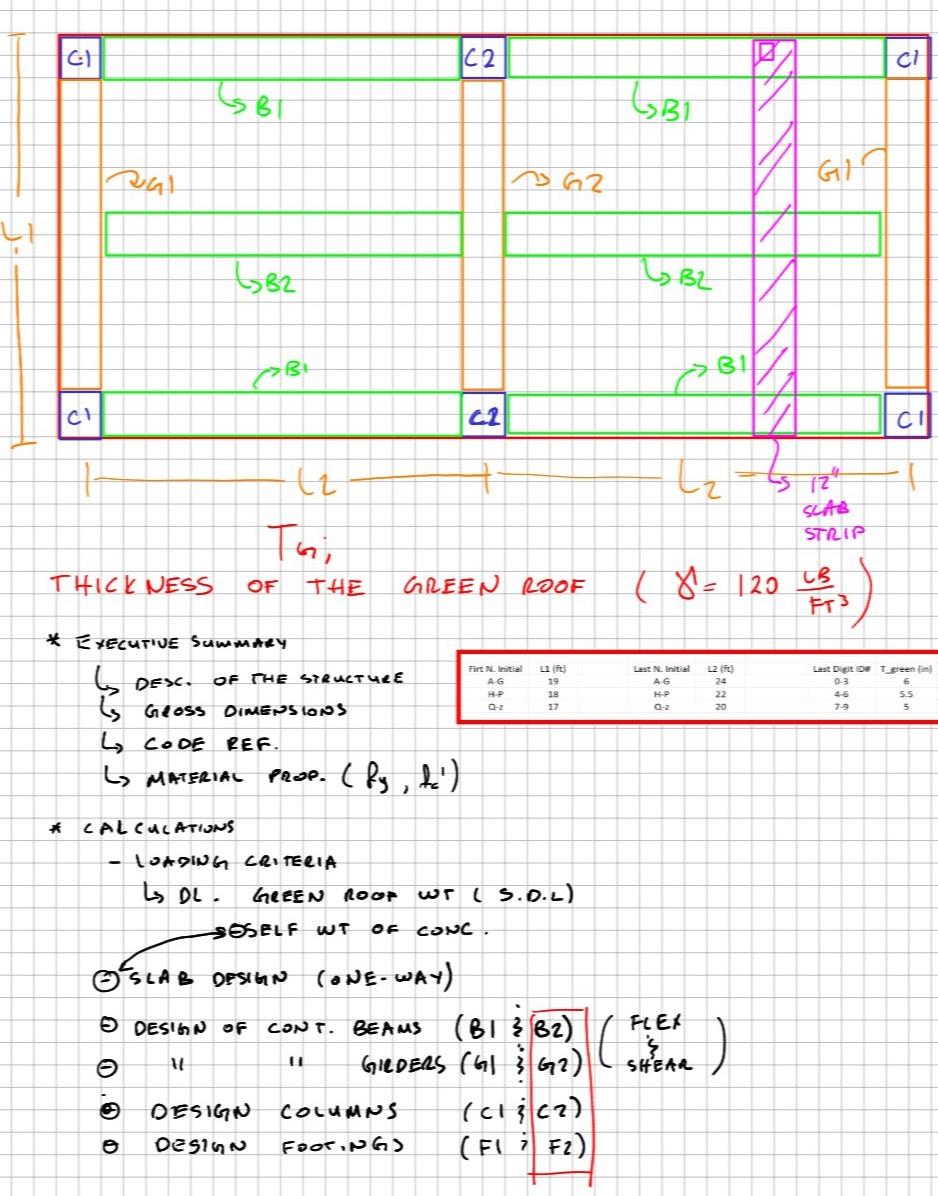 C1
C2
C1
B1
B1
L1
G1
G2
G1
B2
B2
B1
B1
C1
C2
C1
L2
L2
12"
SLAB
STRIP
TG;
THICKNESS OF THE GREEN ROOF (γ = 120 LB/FT³)
* EXECUTIVE SUMMARY
↳ DESC. OF THE STRUCTURE
↳ GROSS DIMENSIONS
↳ CODE REF.
↳ MATERIAL PROP. (fy, fc')
Firt N. Initial L1 (ft) Last N. Initial L2 (ft) Last Digit ID# T_green (in)
A-G 19 A-G 24 0-3 6
H-P 18 H-P 22 4-6 5.5
Q-z 17 Q-z 20 7-9 5
* CALCULATIONS
- LOADING CRITERIA
↳ DL. GREEN ROOF WT (S.D.L)
SELF WT OF CONC.
SLAB DESIGN (ONE-WAY)
DESIGN OF CONT. BEAMS (B1 & B2) (FLEX & SHEAR)
" " GIRDERS (G1 & G2)
DESIGN COLUMNS (C1 & C2)
DESIGN FOOTINGS (F1 & F2)